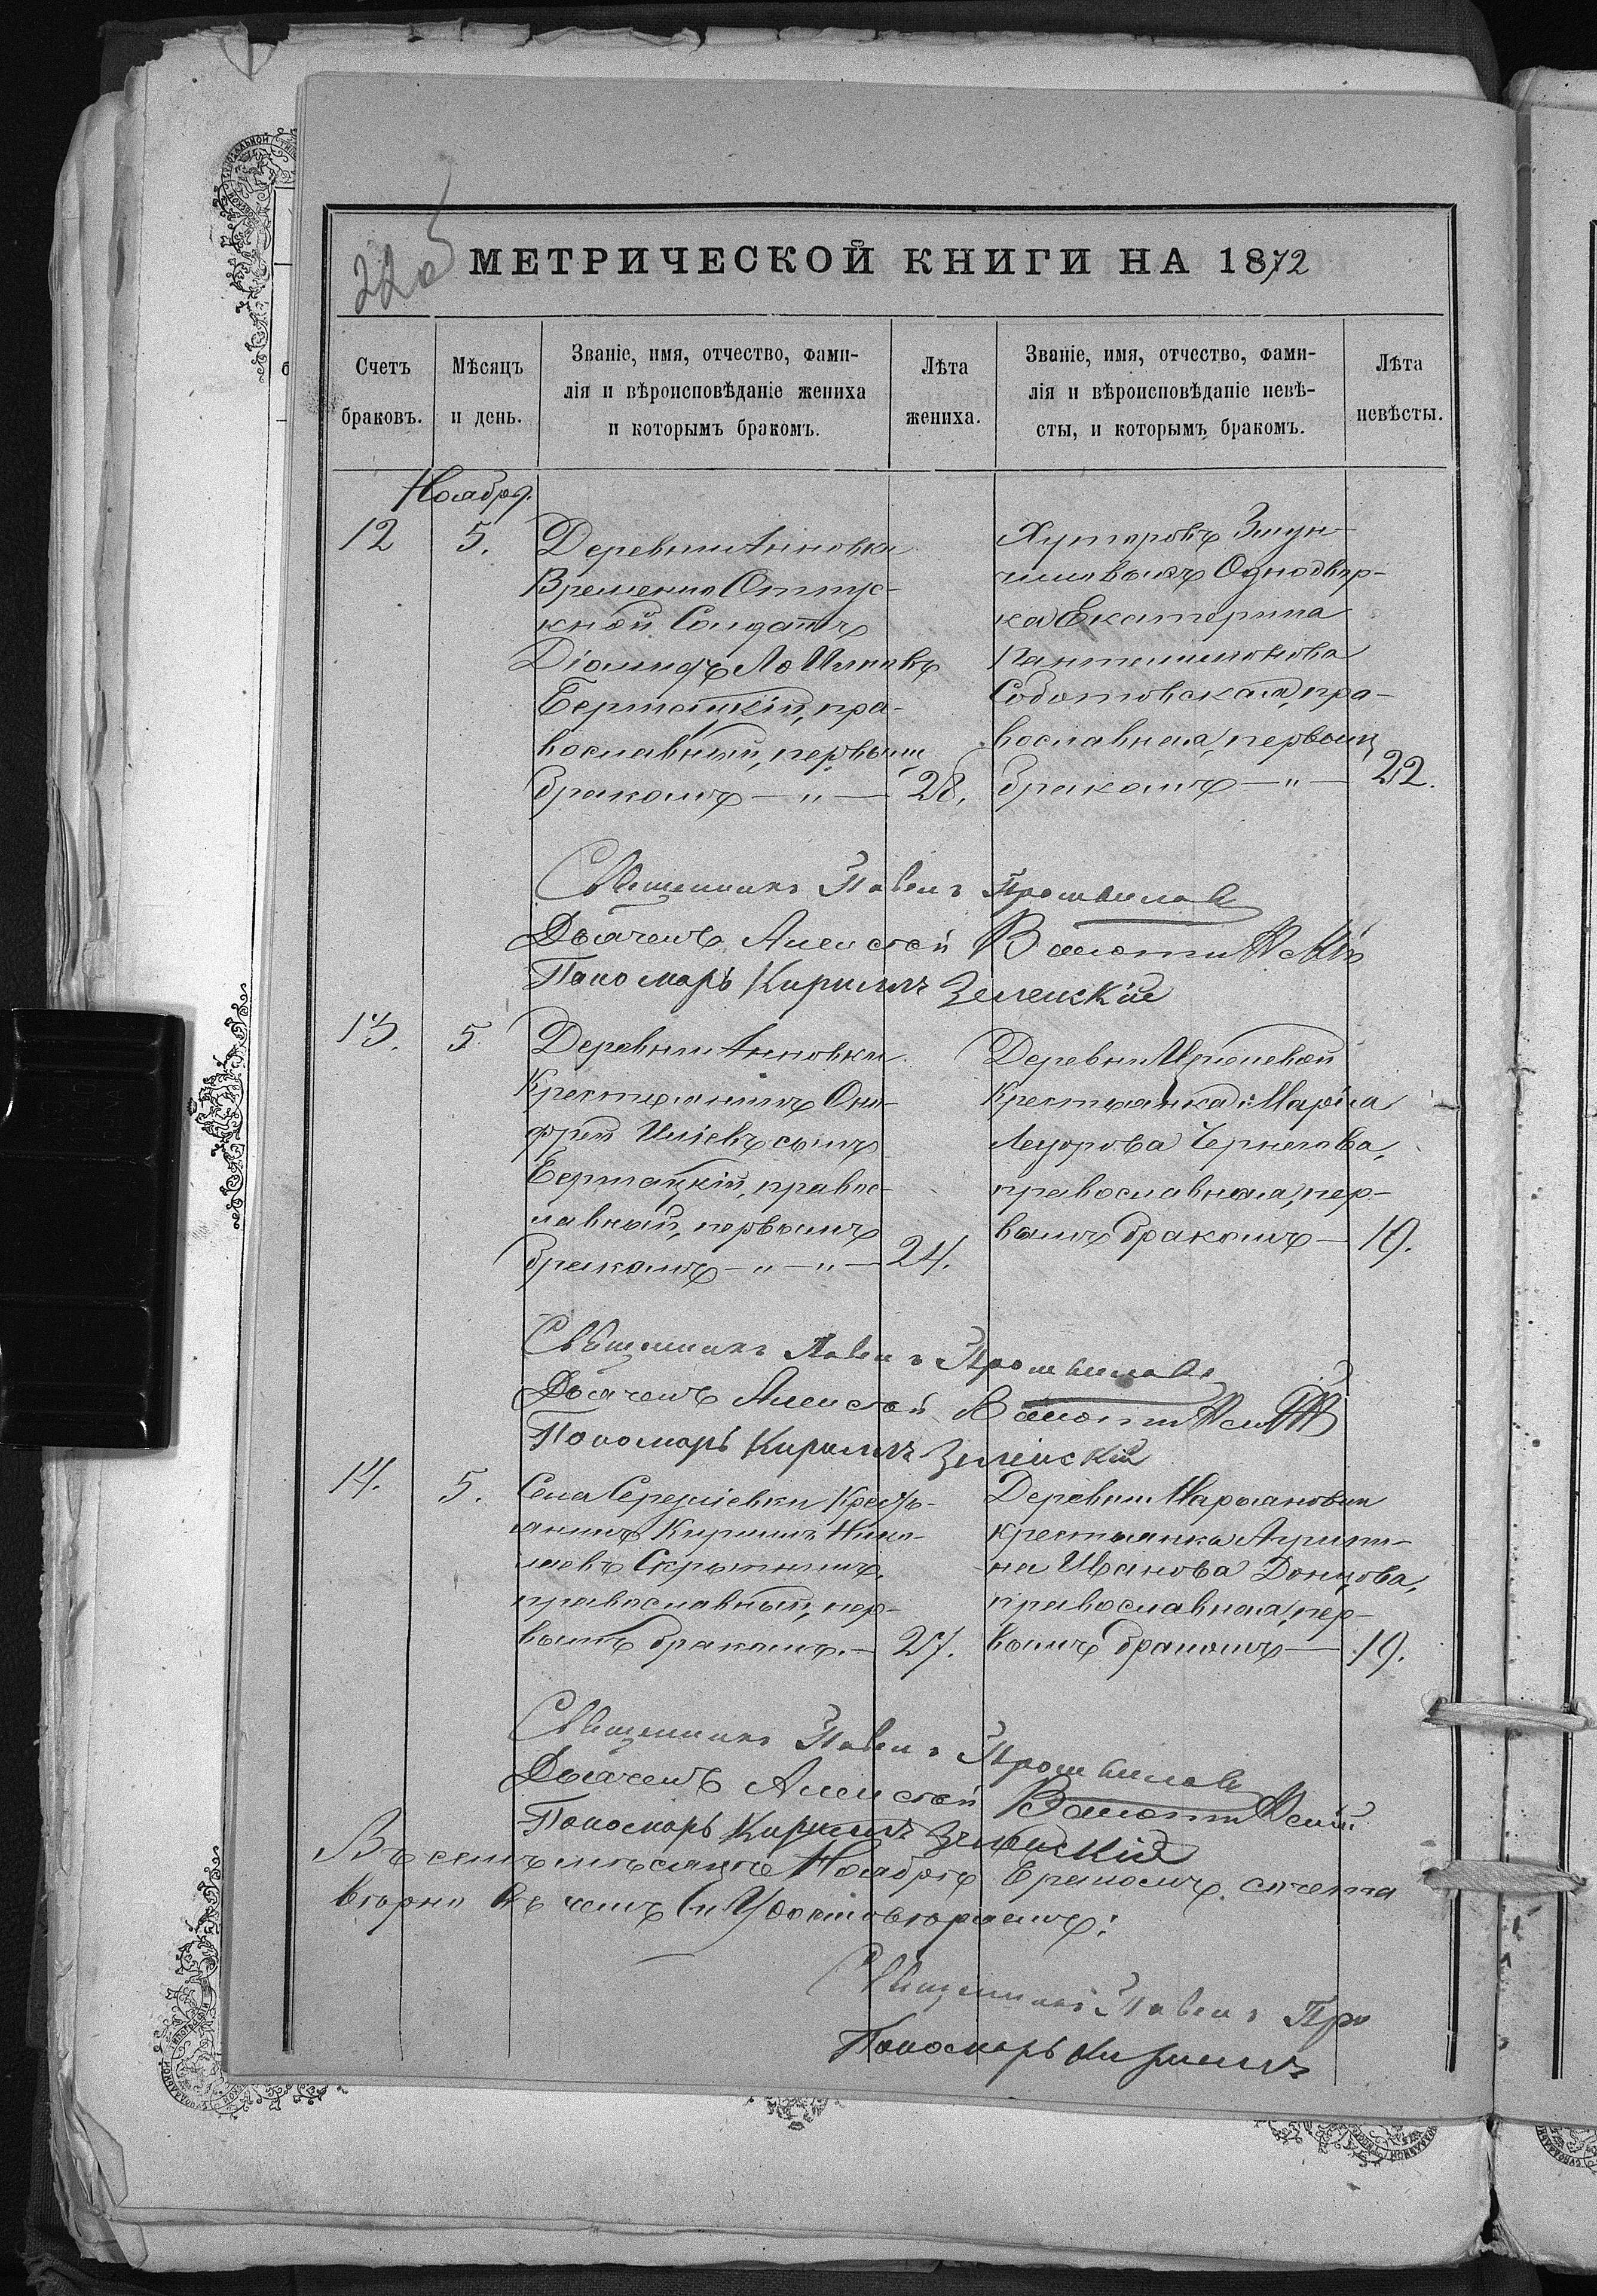 220
МЕТРИЧЕСКОЙ КНИГИ НА 1872
Счетъ браковъ.
Мѣсяцъ и день.
Званіе, имя, отчество, фами-
лія и вѣроисповѣданіе жениха
и которымъ бракомъ.
Лѣта жениха.
Званіе, имя, отчество, фами-
лія и вѣроисповѣданіе невѣ-
сты, и которымъ бракомъ.
Лѣта невѣсты.
Ноября.
12
5.
Деревни Анновки
Временно Отпус-
кной Солдатъ
Діомидъ
Бертацкій, пра-
вославный, первымъ
бракомъ — " — 28.
Хуторовъ
Однодвор-
ка Екатерина
Пантелимонова
Соботовская, пра-
вославная, первымъ
бракомъ — " — 22.
Священникъ Павелъ
Дьячекъ Алексей
Пономарь Кириллъ Зеленскій
13.
5
Деревни Анновки
Крестьянинъ Они-
фрій Иліевъ сынъ
Бертацкій, правос-
лавный, первымъ
бракомъ — " — " — 24.
Деревни
Крестьянка Марѳа
Чернегова,
православная, пер-
вымъ бракомъ — 19.
Священникъ Павелъ
Дьячекъ Алексей
Пономарь Кириллъ Зеленскій
14.
5.
Села Сергіевки Кресть-
янинъ Кириллъ Нико-
лаевъ Скрыпникъ,
православный, пер-
вымъ бракомъ. — 27.
Деревни Марьяновки
крестьянка Агрипи-
на Иванова Донцова,
православная, пер-
вымъ бракомъ — 19.
Священникъ Павелъ
Дьячекъ Алексей
Пономарь Кириллъ Зеленскій
Въ семъ мѣсяцѣ Ноябрѣ бракомъ счета
вѣрно въ чемъ и удостовѣряемъ:
Священникъ Павелъ Про
Пономарь Кириллъ